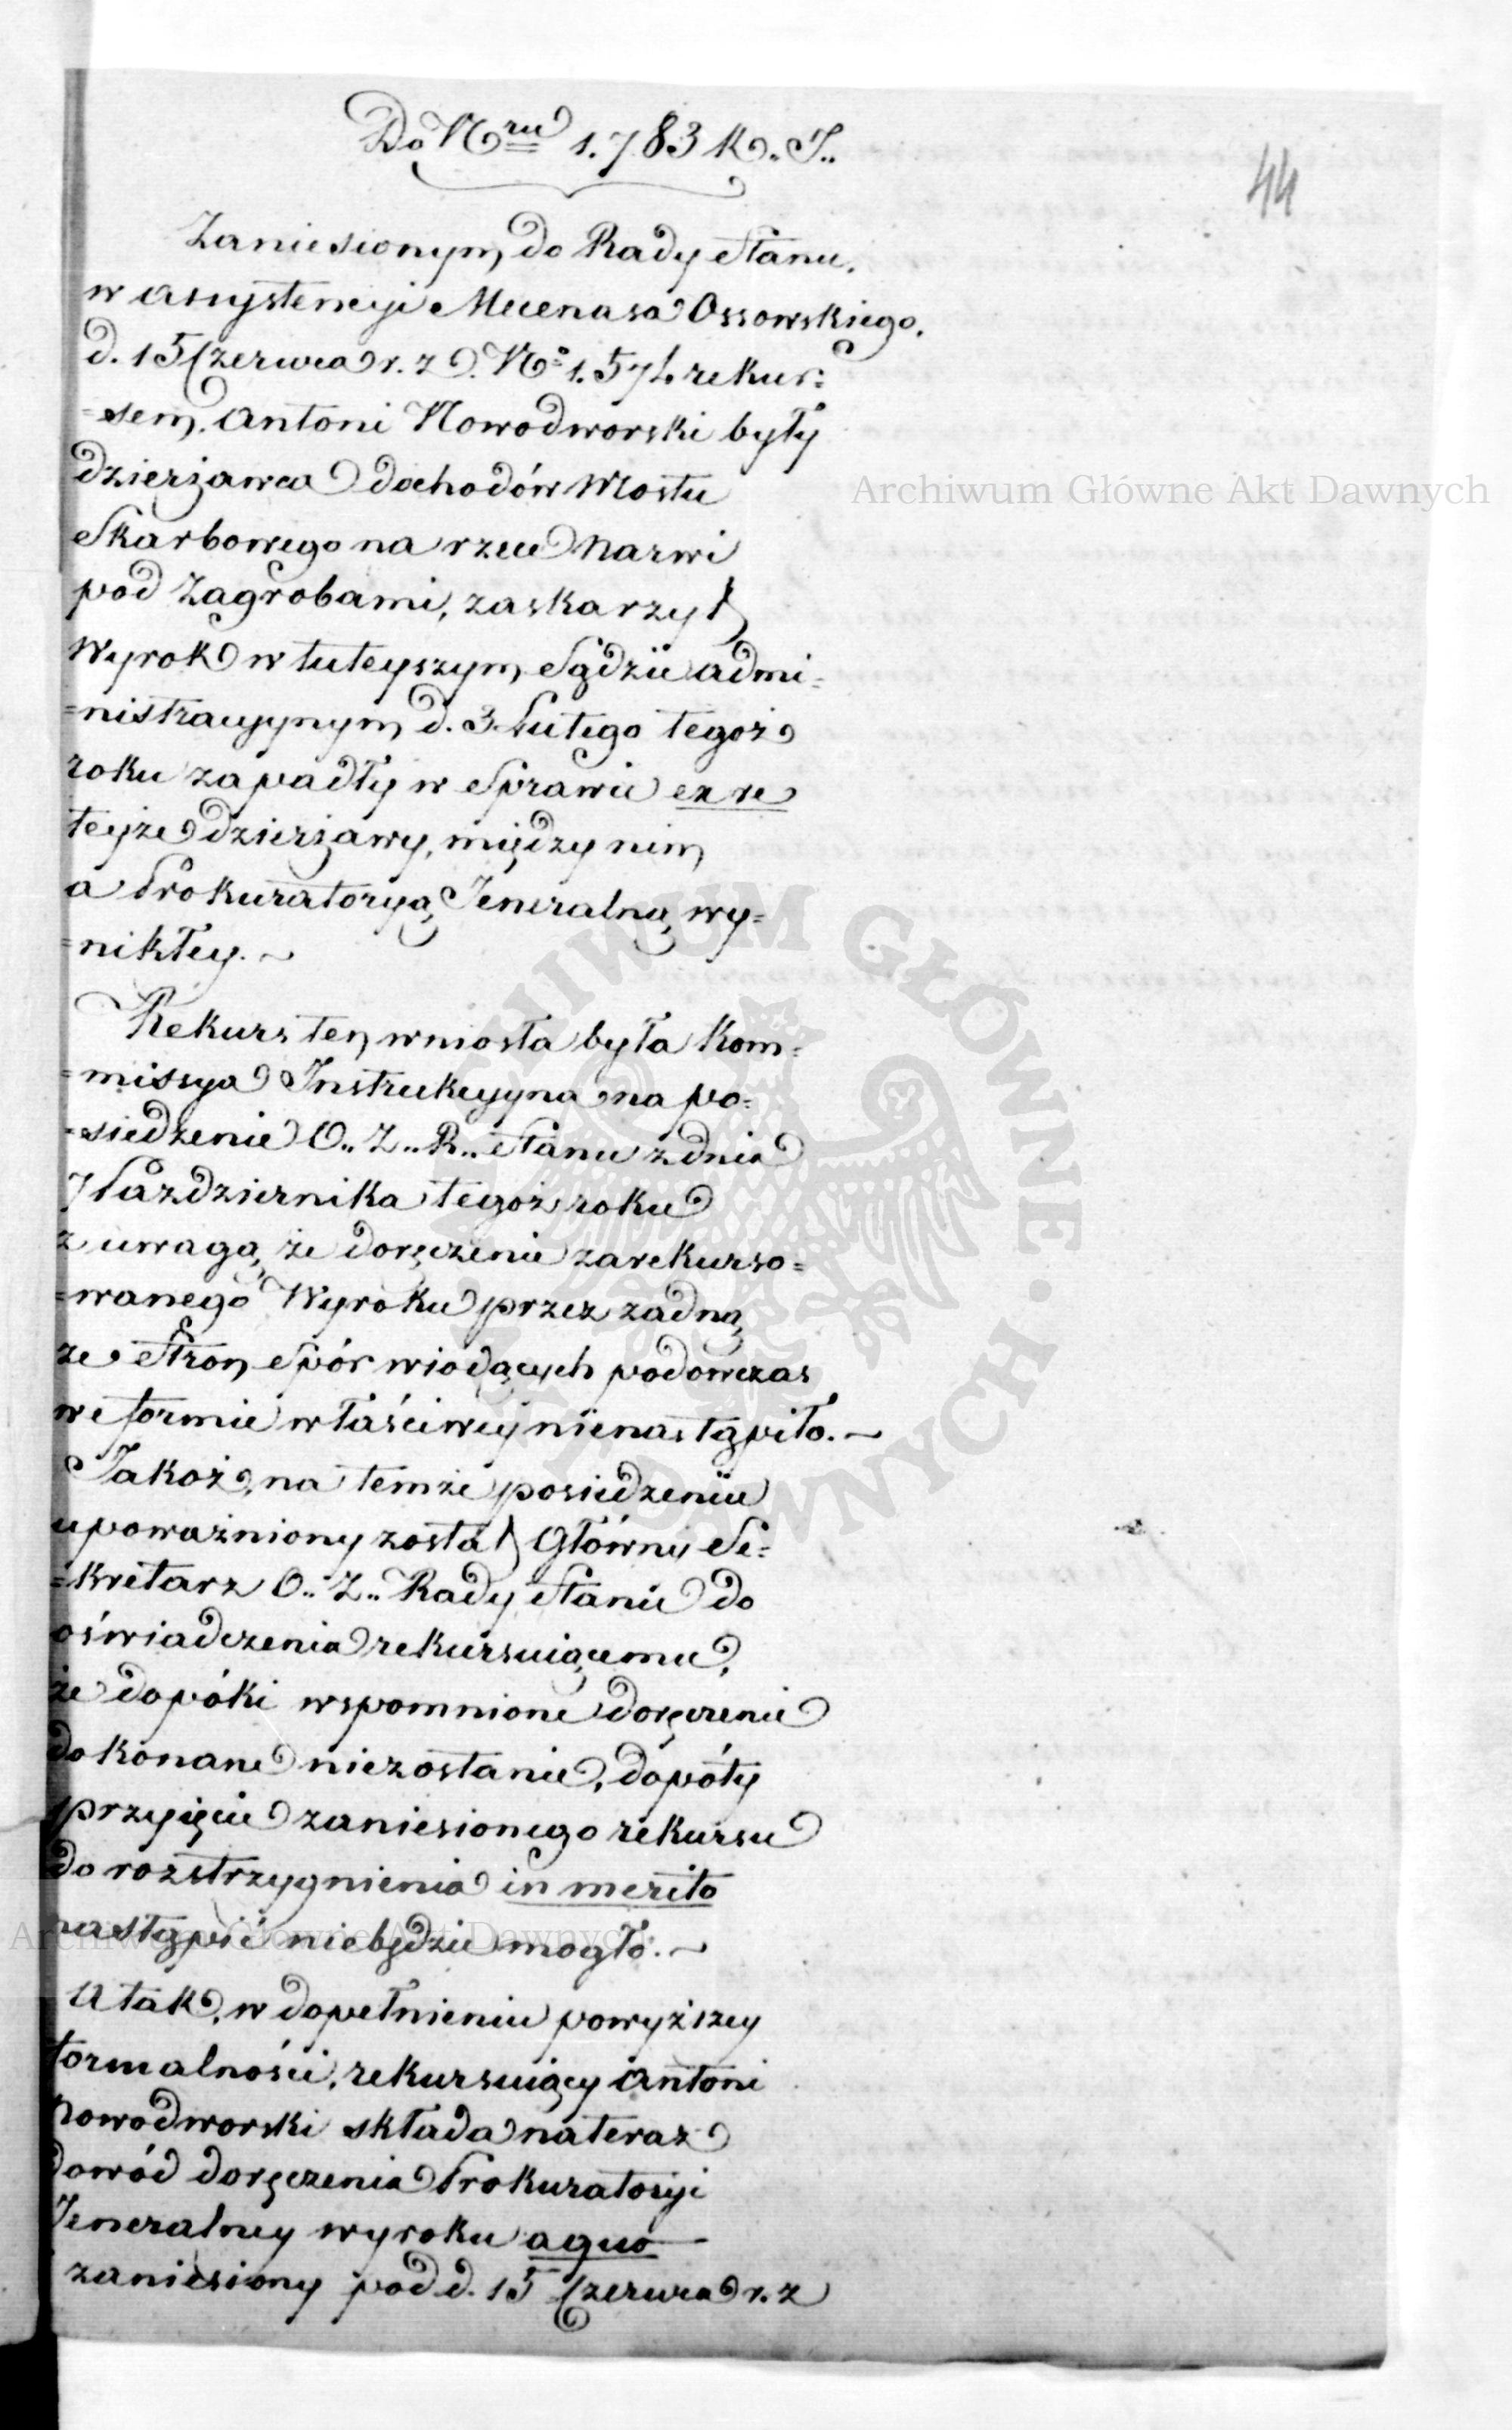 Do Nru 1.783 K.. I..
44
Zaniesionym do Rady Stanu,
w assystencyi Mecenasa Ossowskiego,
d. 15 Czerwca r. z. No 1.574 rekur=
=sem, Antoni Nowodworski były
dzierżawca dochodów Mostu
Skarbowego na rzece Narwi
pod Zagrobami, zaskarzył
Wyrok w tuteyszym Sądzie admi=
=nistracyynym d. 3 Lutego tegoż
roku zapadły w Sprawie ex re
teyże dzierżawy, między nim
a Prokuratoryą Jeneralną wy=
=nikłey. ~
Rekurs ten wniosła była Kom=
=missya Instrukcyyna na po=
=siedzenie O.. Z.. R.. Stanu z dnia
7 Października tegoż roku
z uwagą, że doręczenie zarekurso=
=wanego Wyroku przez żadną
ze Stron Spór wiodących podowczas
we formie właściwey nienastąpiło. ~
Jakoż, na temże posiedzeniu
upoważniony został Główny Se=
=kretarz O.. Z.. Rady Stanu do
oświadczenia rekursuiącemu,
że dopóki wspomnione doręczenie
dokonane niezostanie, dopóty
przyięcie zaniesionego rekursu
do rozstrzygnienia in merito
nastąpić niebędzie mogło. ~
A tak, w dopełnieniu powyższey
formalności, rekursuiący Antoni
Nowodworski składa na teraz
dowód doręczenia Prokuratoryi
Jeneralney wyroku a quo
zaniesiony pod d. 15 Czerwca r. z
Archiwum Główne Akt Dawnych
ARCHIWUM GŁÓWNE · AKT DAWNYCH ·
Archiwum Główne Akt Dawnych